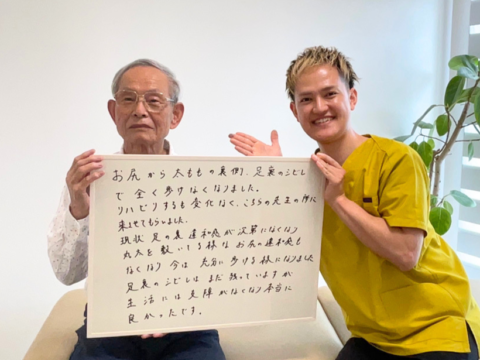 お尻から太ももの裏側、足裏のシビレ
で全く歩けなくなりました。
リハビリするも変化なく、こちらの先生の所に
来させてもらいました。
現状足の裏違和感が次第になくなり
丸太を敷いてる様なお尻の違和感も
なくなり今は充分に歩ける様になりました
足裏のシビレはまだ残っていますが
生活には支障がなくなり本当に
良かったです。